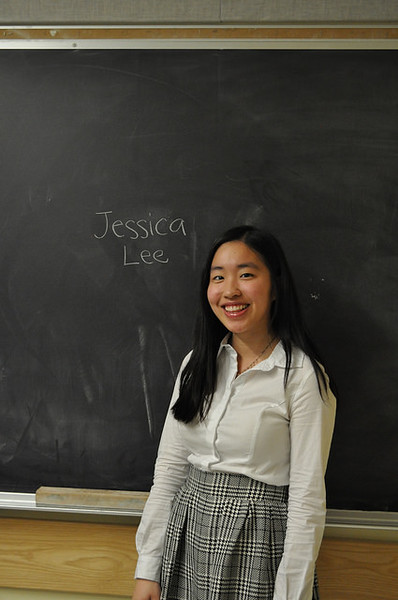 Jessica
Lee